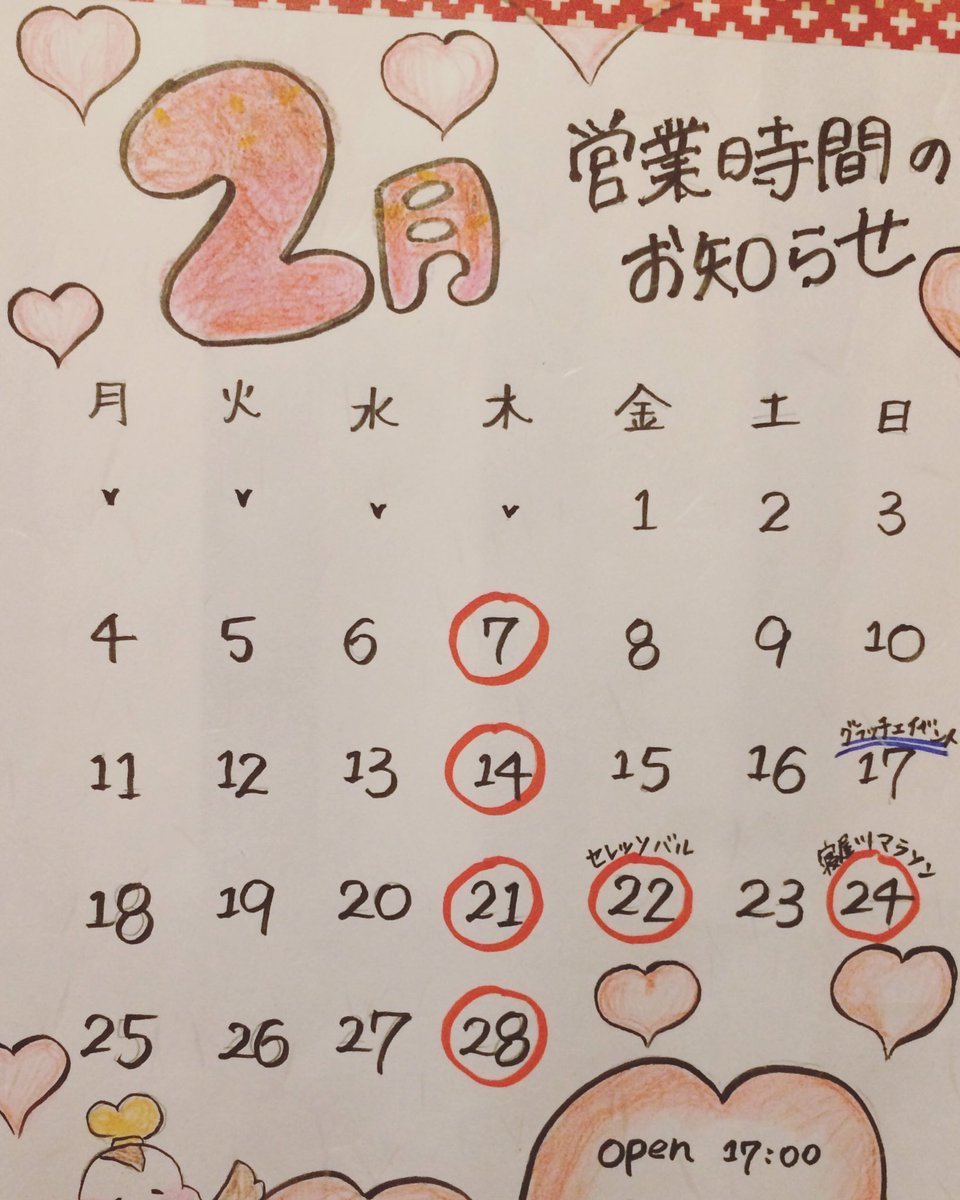 2月
営業時間の
お知らせ
月 火 水 木 金 土 日
1 2 3
4 5 6 7 8 9 10
グラッチェイザンス
11 12 13 14 15 16 17
セレッソバル 寝屋川マラソン
18 19 20 21 22 23 24
25 26 27 28
open 17:00